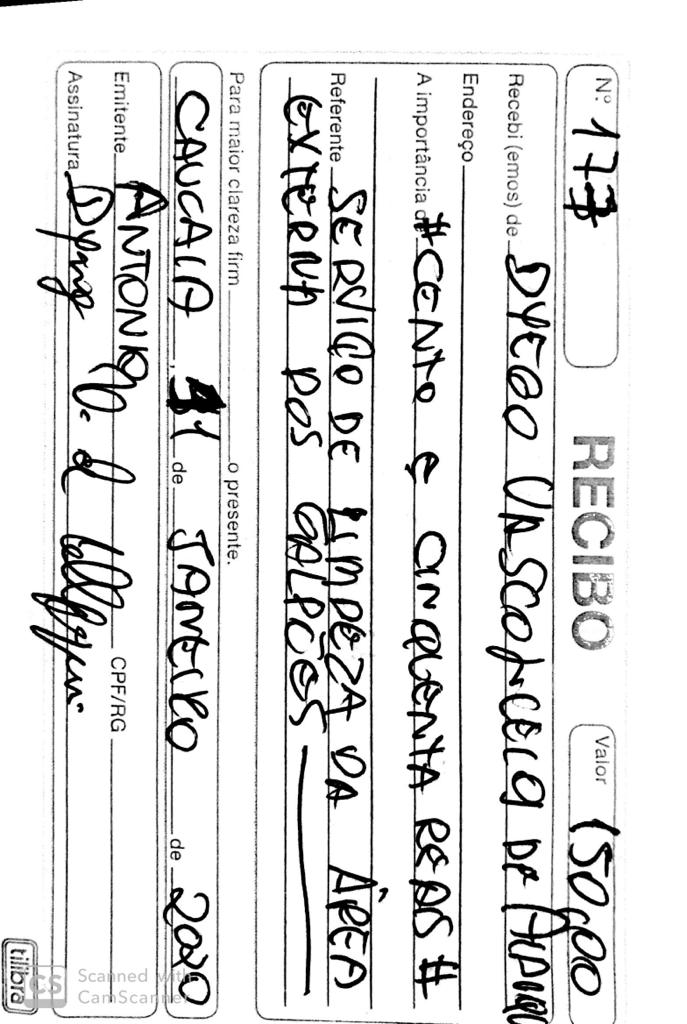 Nº 173 RECIBO Valor 150,00
Recebi (emos) de DYEGO VASCONCELOS DE
Endereço
A importância de #CENTO E CINQUENTA REAIS#
Referente SERVIÇO DE LIMPEZA DA ÁREA
EXTERNA DOS GALPÕES
Para maior clareza firm o presente.
CAUCAIA, 31 de JANEIRO de 2020
Emitente ANTONIO CPF/RG
Assinatura
tilibra
CS Scanned with
CamScanner